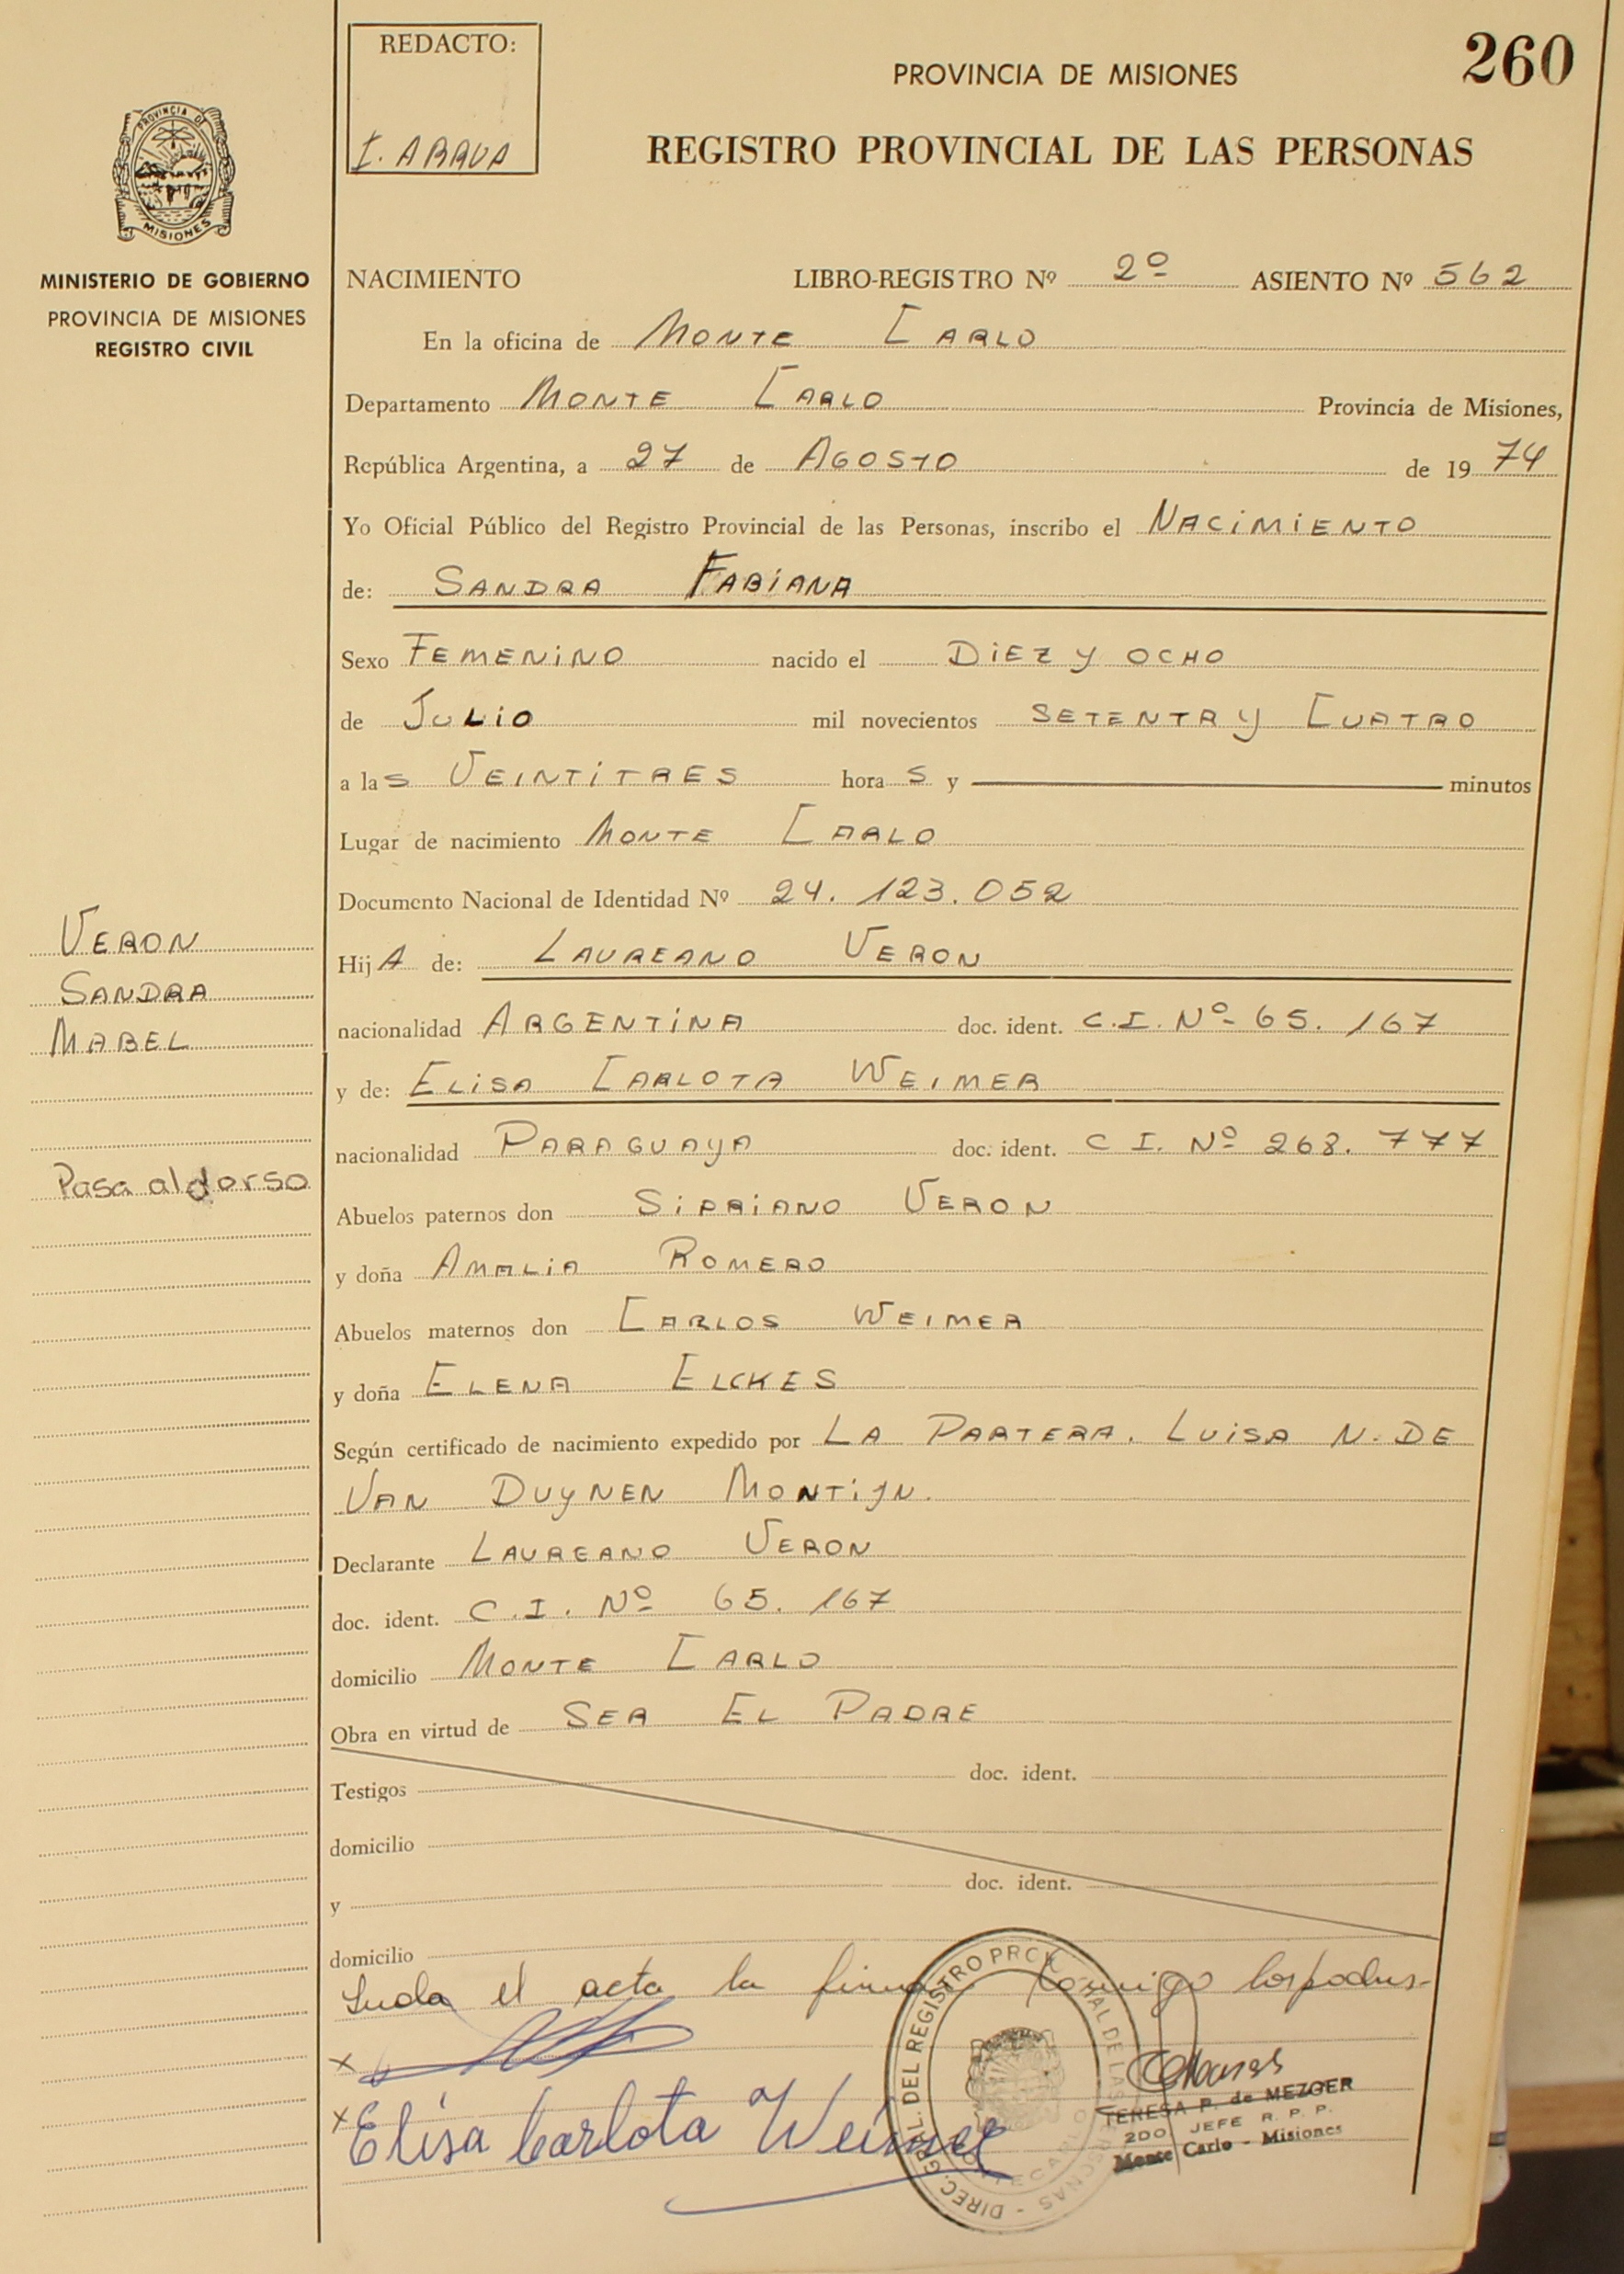 REDACTO:
I. ARRUA
PROVINCIA DE MISIONES
260
REGISTRO PROVINCIAL DE LAS PERSONAS
PROVINCIA DE
MISIONES
MINISTERIO DE GOBIERNO
PROVINCIA DE MISIONES
REGISTRO CIVIL
NACIMIENTO LIBRO-REGISTRO Nº 2º ASIENTO Nº 562
En la oficina de MONTE CARLO
Departamento MONTE CARLO Provincia de Misiones,
República Argentina, a 27 de AGOSTO de 1974
Yo Oficial Público del Registro Provincial de las Personas, inscribo el NACIMIENTO
de: SANDRA FABIANA
Sexo FEMENINO nacido el DIEZ Y OCHO
de JULIO mil novecientos SETENTA Y CUATRO
a las VEINTITRES horas y minutos
Lugar de nacimiento MONTE CARLO
Documento Nacional de Identidad Nº 24.123.052
VERON
SANDRA
MABEL
Pasa al dorso
HijA de: LAUREANO VERON
nacionalidad ARGENTINA doc. ident. C.I. Nº 65.167
y de: ELISA CARLOTA WEIMER
nacionalidad PARAGUAYA doc. ident. C I. Nº 268.777
Abuelos paternos don SIPRIANO VERON
y doña AMALIA ROMERO
Abuelos maternos don CARLOS WEIMER
y doña ELENA ELCKES
Según certificado de nacimiento expedido por LA PARTERA. LUISA N. DE
VAN DUYNEN MONTIJN.
Declarante LAUREANO VERON
doc. ident. C.I. Nº 65.167
domicilio MONTE CARLO
Obra en virtud de SER EL PADRE
Testigos doc. ident.
domicilio
y doc. ident.
domicilio
Leida el acta la firman conmigo los padres-
x
x Elisa Carlota Weimer
DIREC. GRAL. DEL REGISTRO PROVINCIAL DE LAS PERSONAS
TERESA P. de MEZGER
2DO JEFE R. P. P.
Monte Carlo - Misiones